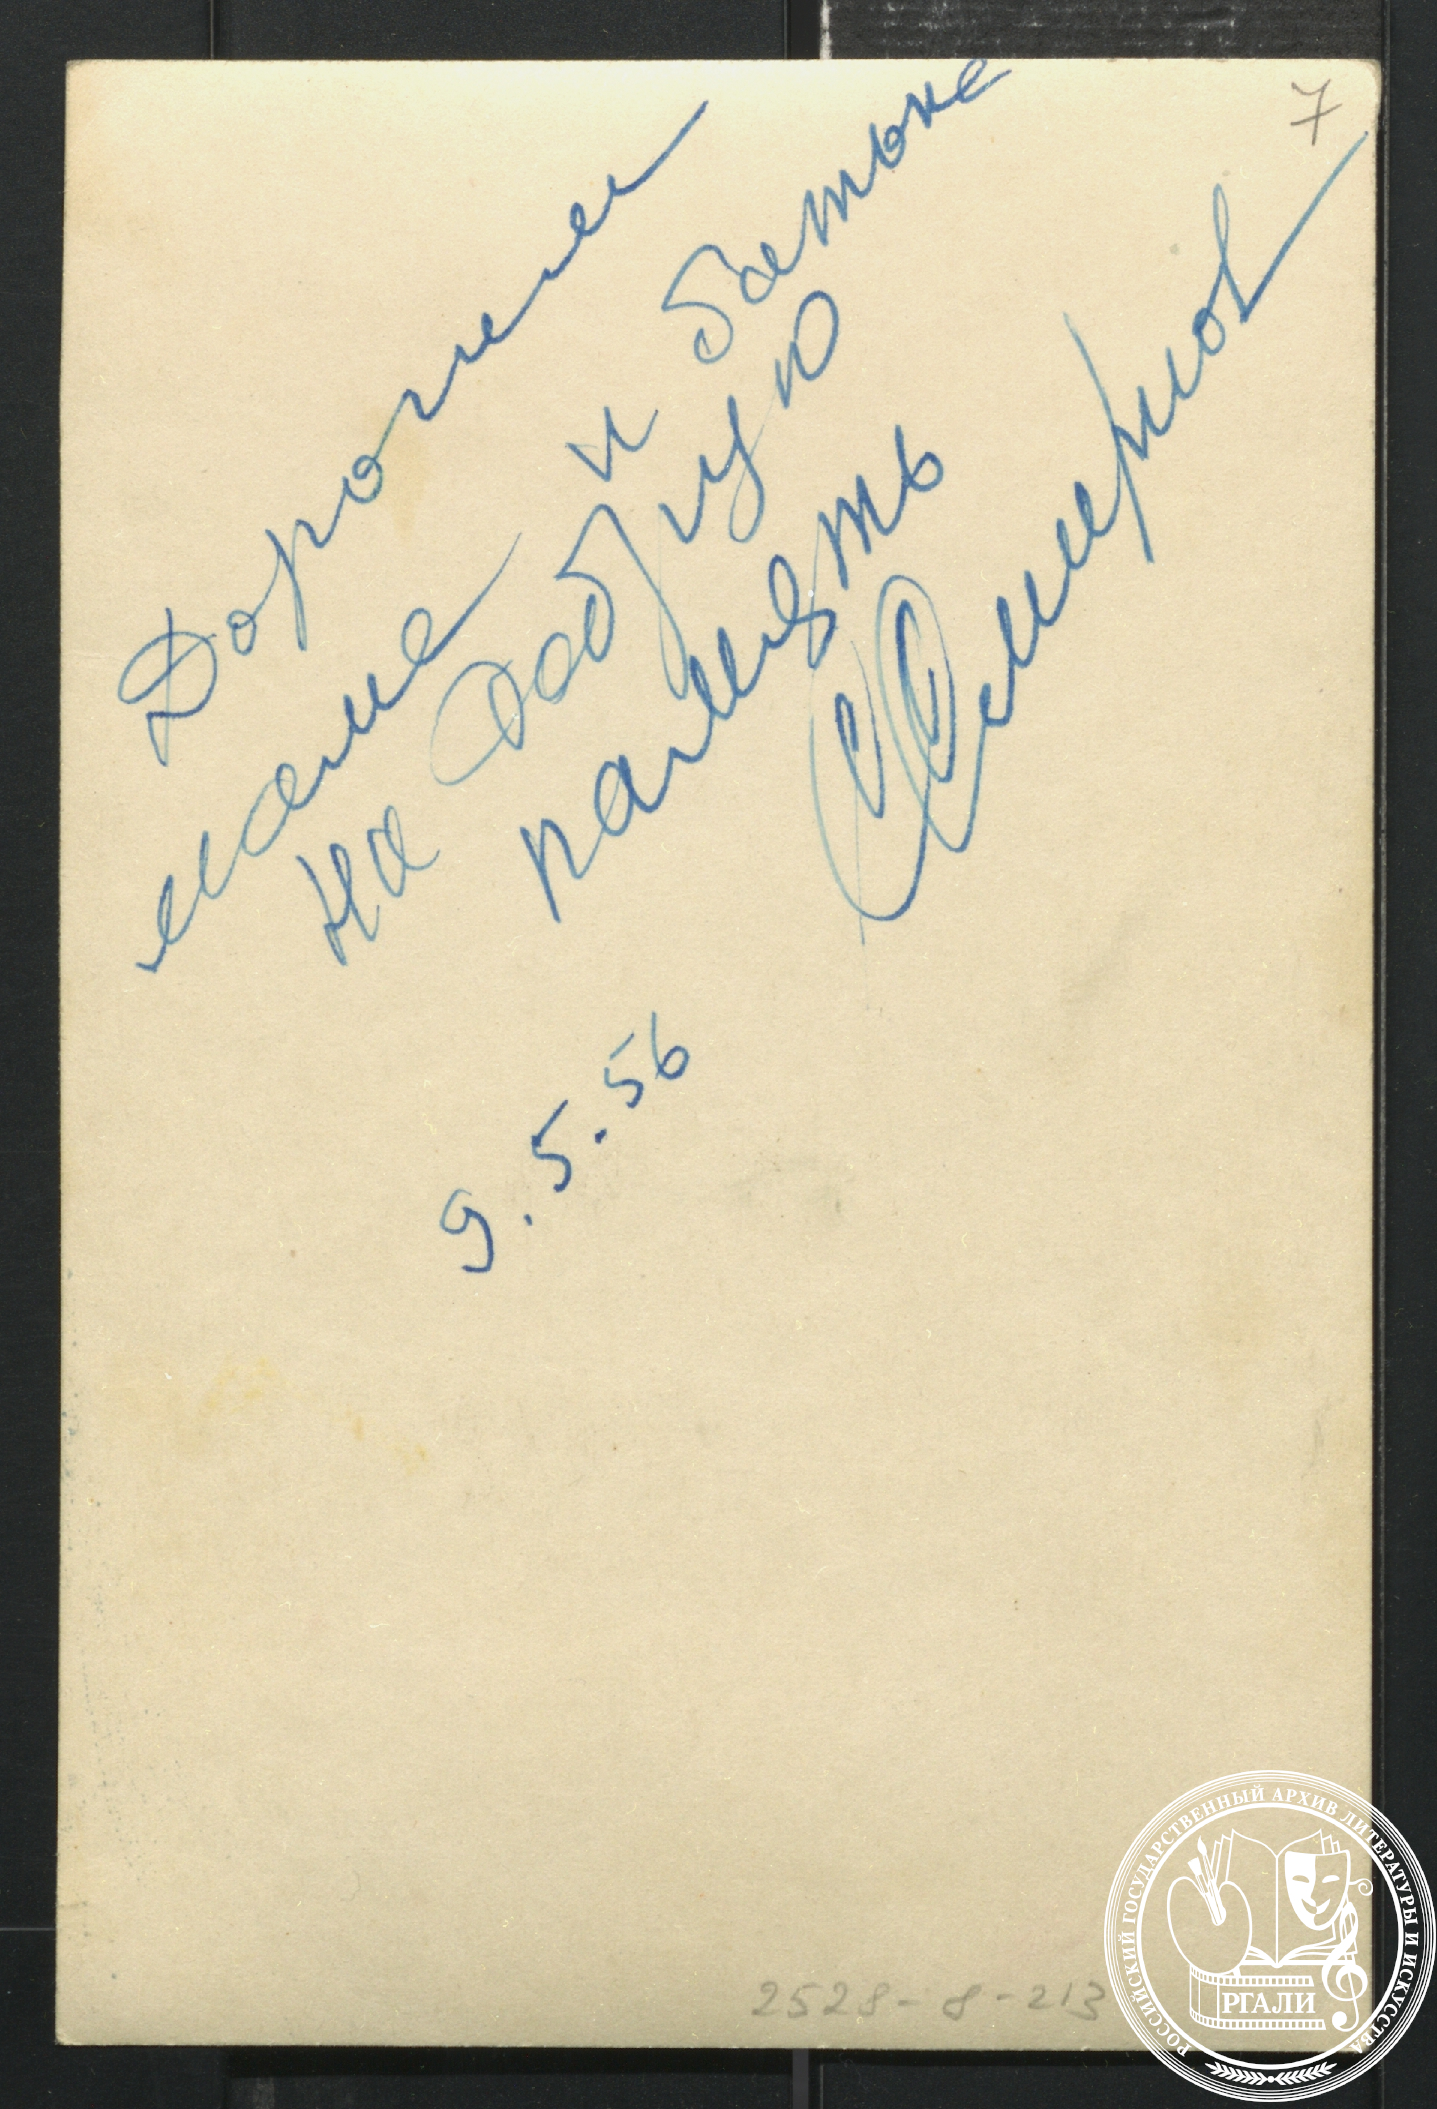 7
Дорогим
маме и батьке
на добрую
память
ССмирнов
9.5.56
2528-8-213
РОССИЙСКИЙ ГОСУДАРСТВЕННЫЙ АРХИВ ЛИТЕРАТУРЫ И ИСКУССТВА
РГАЛИ